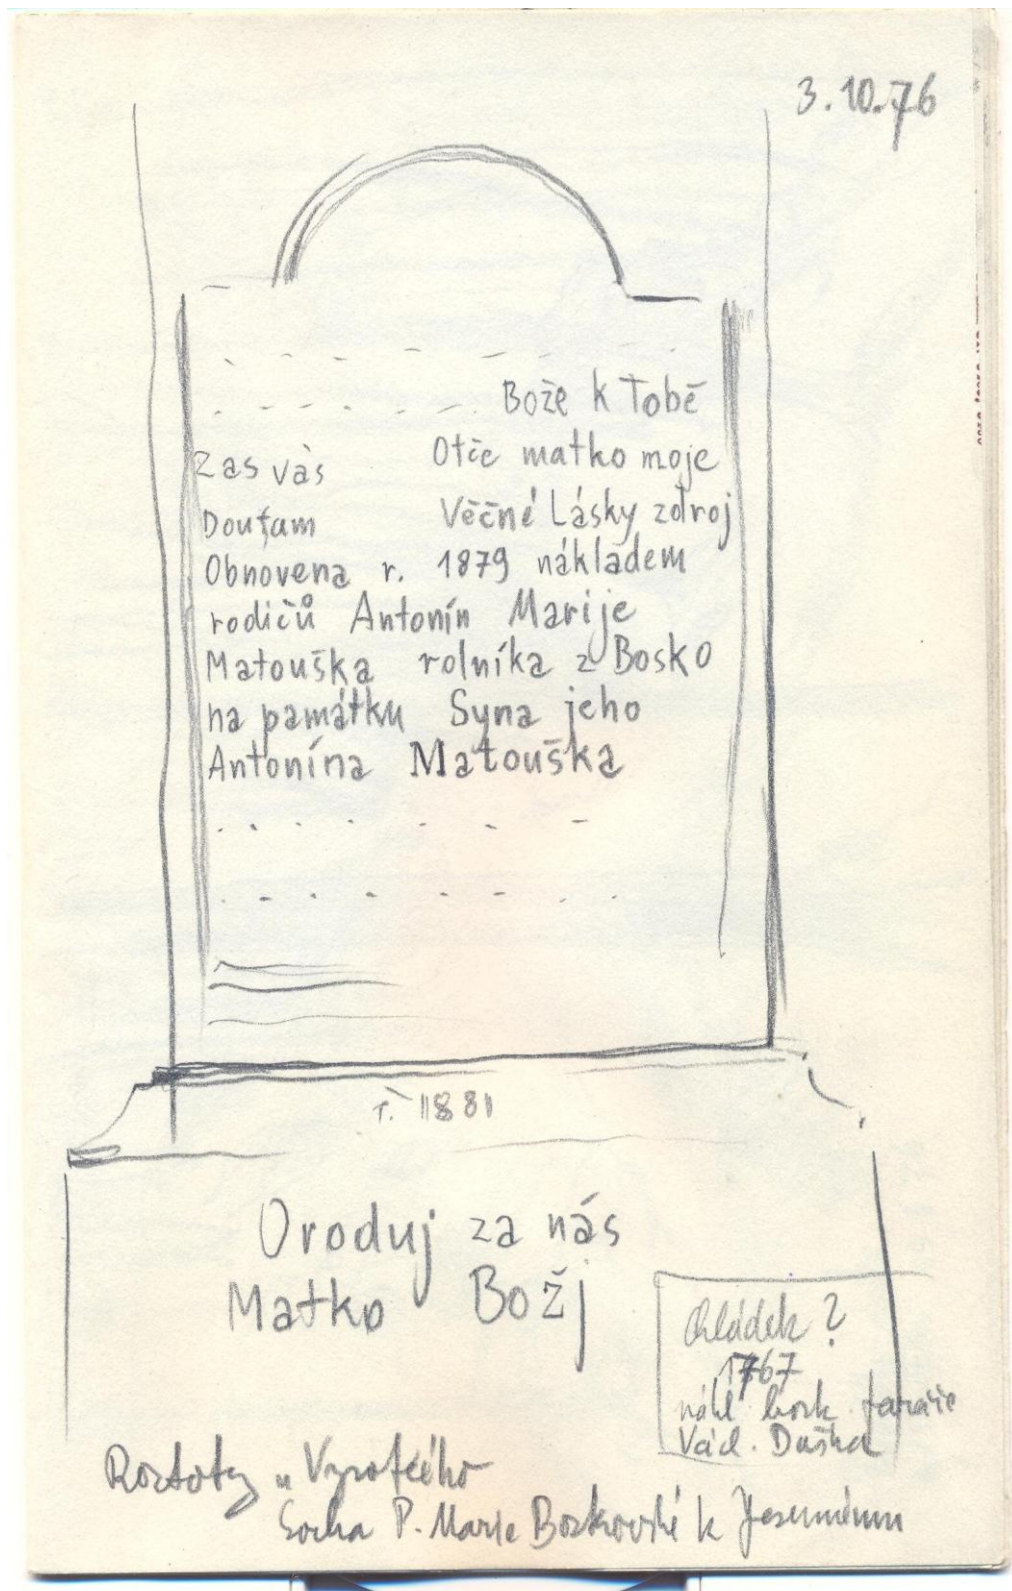 3.10.76
Bože k Tobě
Zas vás Otče matko moje
Doufam Věčné Lásky zdroj
Obnovena r. 1879 nákladem
rodičů Antonín Marije
Matouška rolníka z Bosko
na památku Syna jeho
Antonína Matouška
r. 1881
Oroduj za nás
Matko Božj
Chládek ?
1767
nákl bosk faráře
Václ. Daška
Roztoky u
Socha P. Marie Boskovské k